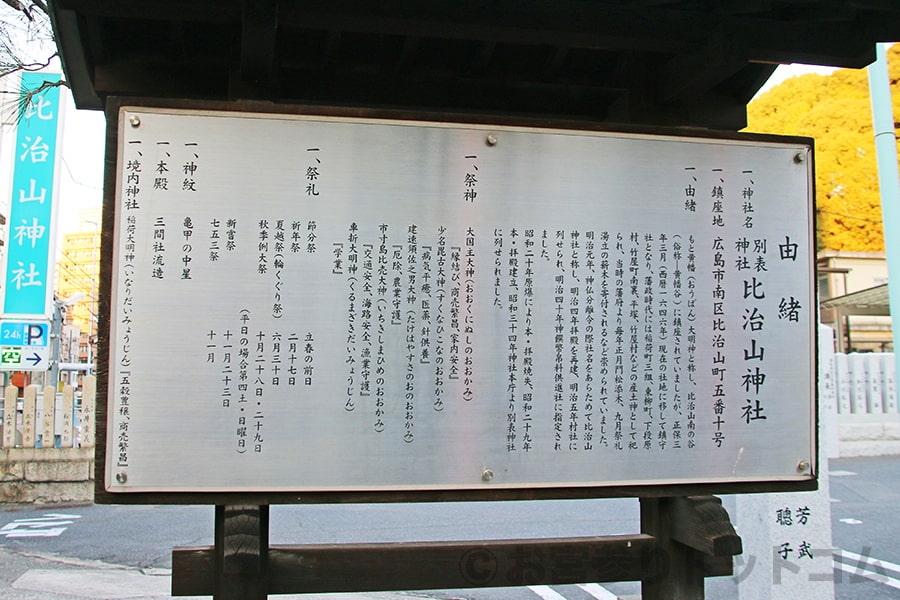 由緒
一、神社名 別表神社 比治山神社
一、鎮座地 広島市南区比治山町五番十号
一、由緒
もと黄幡（おうばん）大明神と称し、比治山南の谷
（俗称・黄幡谷）に鎮座されていましたが、正保三
年三月（西暦一六四六年）現在の社地に移して鎮守
社となり、藩政時代には稲荷町三組、東柳町、下段原
村、竹屋町南裏、平塚、竹屋村などの産土神として祀
られ、当時の藩府より毎年正月門松添木、九月祭礼
湯立の薪木を寄付されるなど崇められていました。
明治元年、神仏分離令の際社名をあらためて比治山
神社と称し、明治四年拝殿を再建、明治五年村社に
列せられ、明治四十年神饌幣帛料供進社に指定され
ました。
昭和二十年原爆により本・拝殿焼失、昭和二十九年
本・拝殿建立、昭和三十四年神社本庁より別表神社
に列せられました。
一、祭神
大国主大神（おおくにぬしのおおかみ）
『縁結び、商売繁昌、家内安全』
少名毘古大神（すくなひこなのおおかみ）
『病気平癒、医薬、針供養』
建速須佐之男大神（たけはやすさのおのおおかみ）
『厄除、農業守護』
市寸島比売大神（いちきしまひめのおおかみ）
『交通安全、海路安全、漁業守護』
車折大明神（くるまざきだいみょうじん）
『学業』
一、祭礼
節分祭 立春の前日
祈年祭 二月十七日
夏越祭（輪くぐり祭） 六月三十日
秋季例大祭 十月二十八日・二十九日
（平日の場合第四土・日曜日）
新嘗祭 十一月二十三日
七五三祭 十一月
一、神紋 亀甲の中星
一、本殿 三間社流造
一、境内神社 稲荷大明神（いなりだいみょうじん）『五穀豊穣、商売繁昌』
比治山神社
24h P
芳武
聰子
©お宮参りドットコム